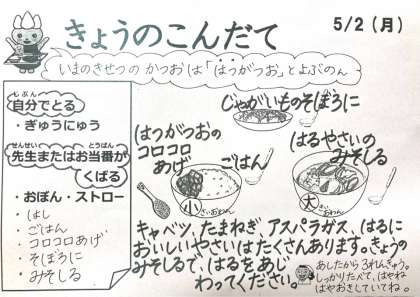 きょうのこんだて
5/2（月）
いまのきせつの かつおは「はつがつお」とよぶのん
じぶん
自分でとる
・ぎゅうにゅう
せんせい とうばん
先生またはお当番が
くばる
・おぼん・ストロー
・はし
・ごはん
・コロコロあげ
・そぼろに
・みそしる
じゃがいものそぼろに
はつがつおの
コロコロ
あげ
ごはん
小
はるやさいの
みそしる
大
キャベツ、たまねぎ、アスパラガス、はるに
おいしいやさいはたくさんあります。きょうの
みそしるで、はるをあじ
わってください。
あしたから3れんきゅう。
しっかりたべて、はやね
はやおきしていてね。